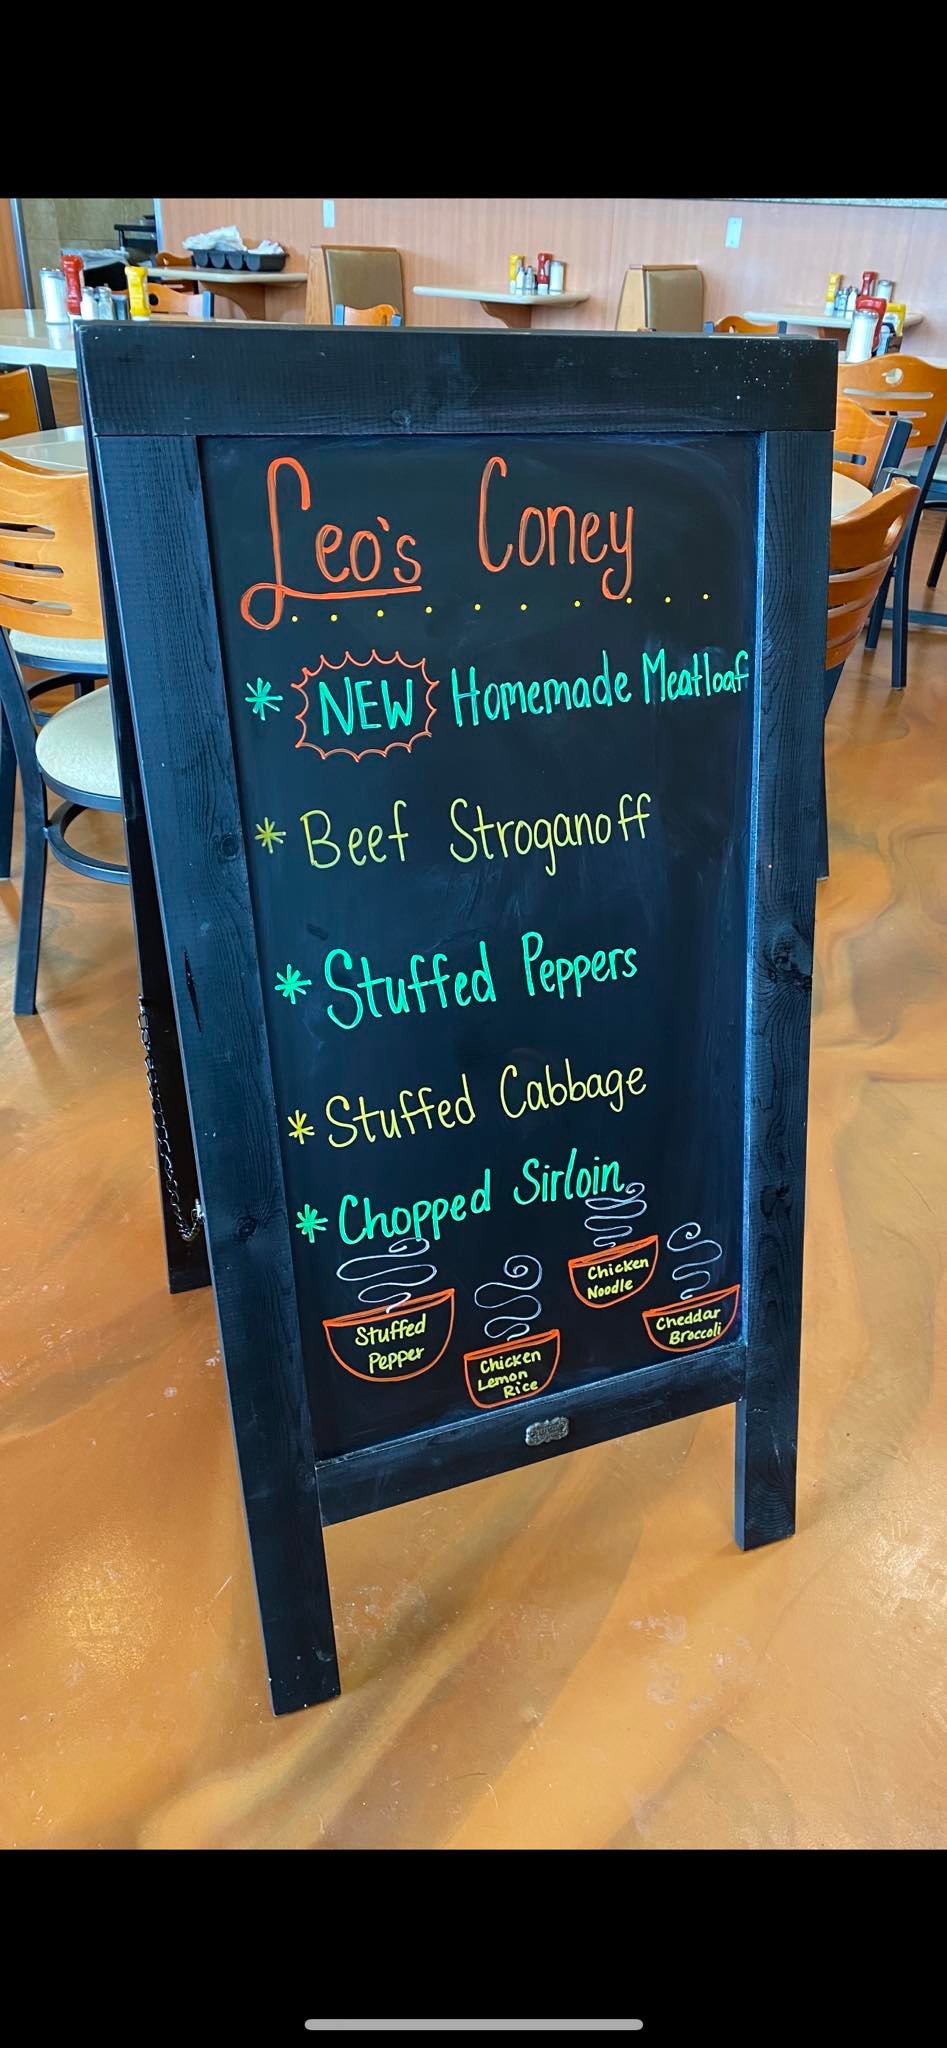 Leo's Coney
* NEW Homemade Meatloaf
* Beef Stroganoff
* Stuffed Peppers
* Stuffed Cabbage
* Chopped Sirloin
Stuffed
Pepper
Chicken
Lemon
Rice
Chicken
Noodle
Cheddar
Broccoli